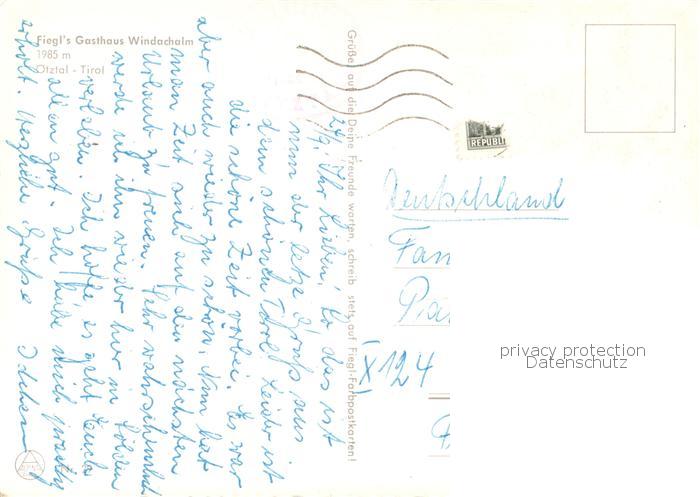 Fiegl's Gasthaus Windachalm
1985 m
Ötztal - Tirol
Grüße! auf die! Deine Freunde warten, schreib stets auf Fiegl-Farbpostkarten!
24/9. Ihr Lieben! So das ist
nun der letzte Gruß aus
dem schönen Tirol. Leider ist
die schöne Zeit vorbei. Es war
aber auch wieder zu schön. Nun hat
man Zeit sich auf den nächsten
Urlaub zu freuen. Sehr wahrscheinlich
werde ich ihn wieder hier in Sölden
verleben. Ich hoffe es geht Euch
allen gut. Ich habe mich prächtig
erholt. Herzliche Grüße
REPUBLI
Deutschland
Fam
X 124
privacy protection
Datenschutz